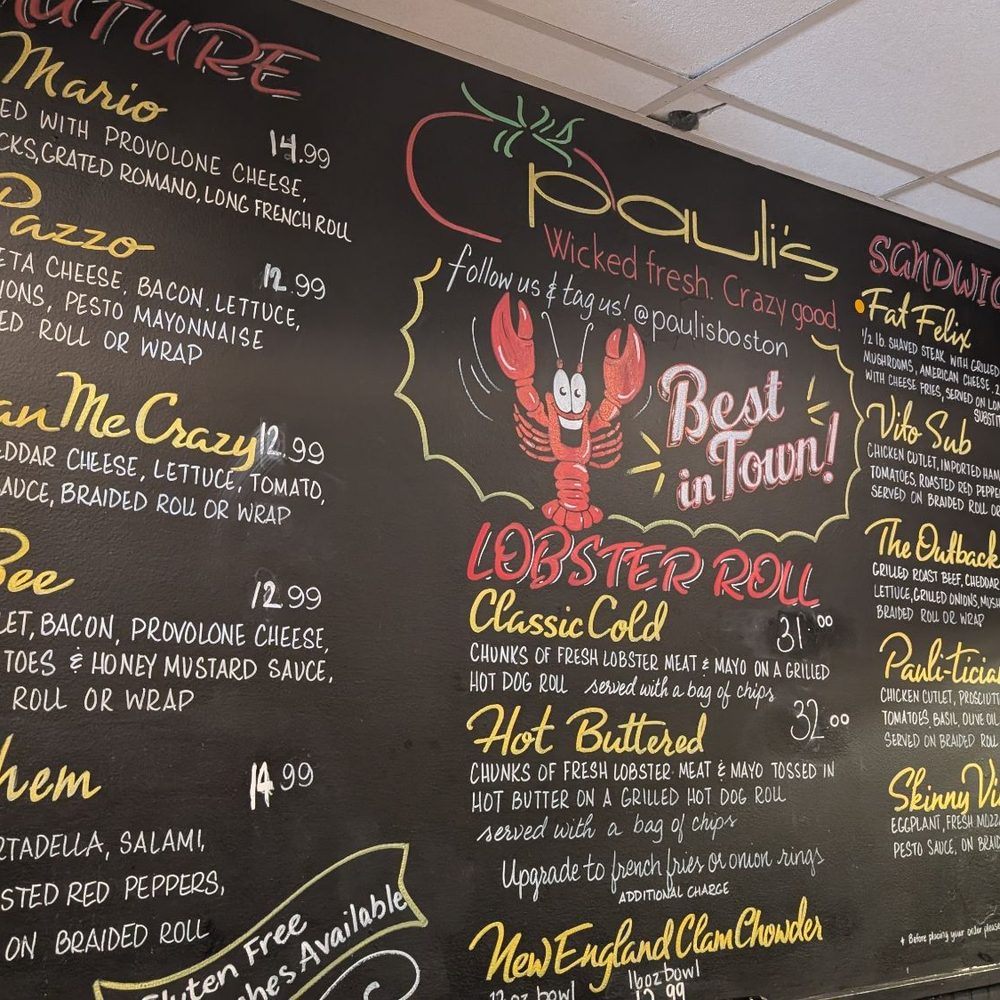 Mario
14.99
WITH PROVOLONE CHEESE,
GRATED ROMANO, LONG FRENCH ROLL
Pazzo
12.99
CHEESE, BACON, LETTUCE,
PESTO MAYONNAISE
ROLL OR WRAP
Me Crazy 12.99
CHEESE, LETTUCE, TOMATO,
BRAIDED ROLL OR WRAP
Bee
12.99
BACON, PROVOLONE CHEESE,
& HONEY MUSTARD SAUCE,
ROLL OR WRAP
14.99
SALAMI,
RED PEPPERS,
ON BRAIDED ROLL
Gluten Free
Available
pauli's
Wicked fresh. Crazy good.
follow us & tag us! @paulisboston
Best
in Town!
LOBSTER ROLL
Classic Cold
31.00
CHUNKS OF FRESH LOBSTER MEAT & MAYO ON A GRILLED
HOT DOG ROLL served with a bag of chips
Hot Buttered
32.00
CHUNKS OF FRESH LOBSTER MEAT & MAYO TOSSED IN
HOT BUTTER ON A GRILLED HOT DOG ROLL
served with a bag of chips
Upgrade to french fries or onion rings
ADDITIONAL CHARGE
New England Clam Chowder
12oz bowl 16oz bowl
12.99
Fat Felix
1/2 lb. SHAVED STEAK WITH GRILLED
MUSHROOMS, AMERICAN CHEESE,
WITH CHEESE FRIES, SERVED ON
Vito Sub
CHICKEN CUTLET, IMPORTED HAM
TOMATOES, ROASTED RED
SERVED ON BRAIDED ROLL OR
The Outback
GRILLED ROAST BEEF, CHEDDAR
LETTUCE, GRILLED ONIONS,
BRAIDED ROLL OR WRAP
CHICKEN CUTLET,
TOMATOES BASIL OLIVE OIL
SERVED ON BRAIDED ROLL
Skinny
EGGPLANT, FRESH
PESTO SAUCE, ON
Before placing your order please